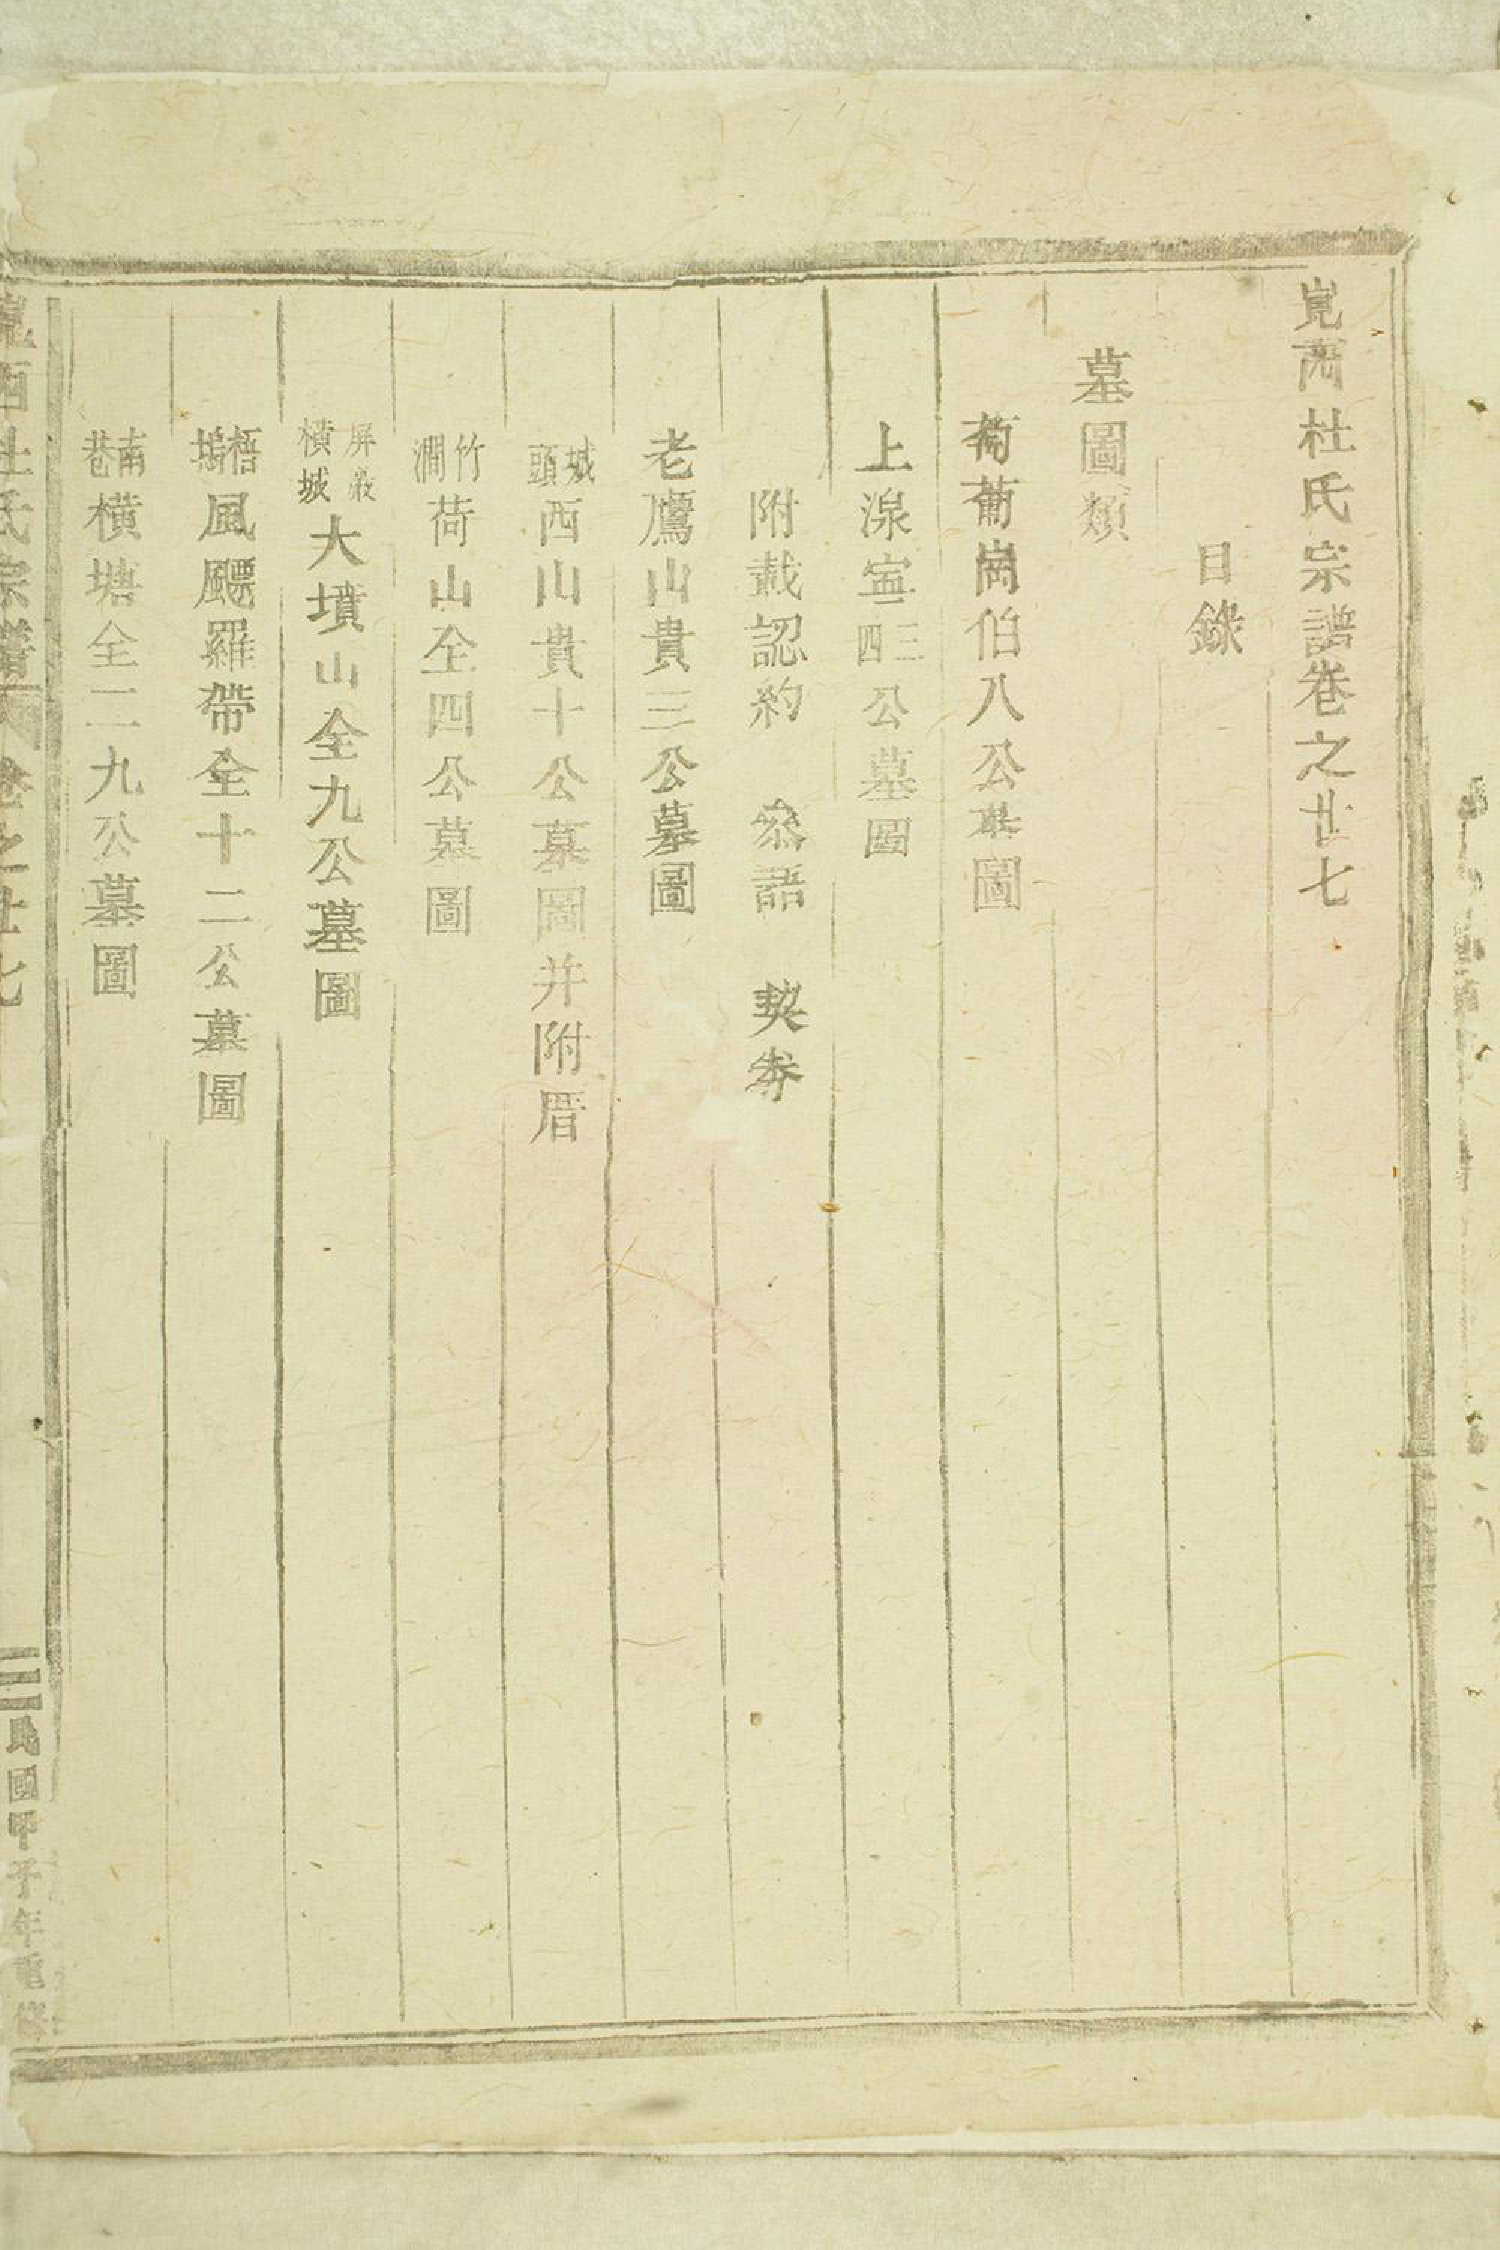 峴西杜氏宗譜卷之廿七
目錄
墓圖類
葡萄崗伯八公墓圖
上湶寍三四公墓圖
附載認約 叅語 契券
老鷹山貴三公墓圖
城頭西山貴十公墓圖并附厝
竹澗荷山全四公墓圖
屏巖橫城大墳山全九公墓圖
梧塢風飃羅帶全十二公墓圖
南巷橫塘全二九公墓圖
峴西杜氏宗譜 卷之廿七
民國甲子年重修